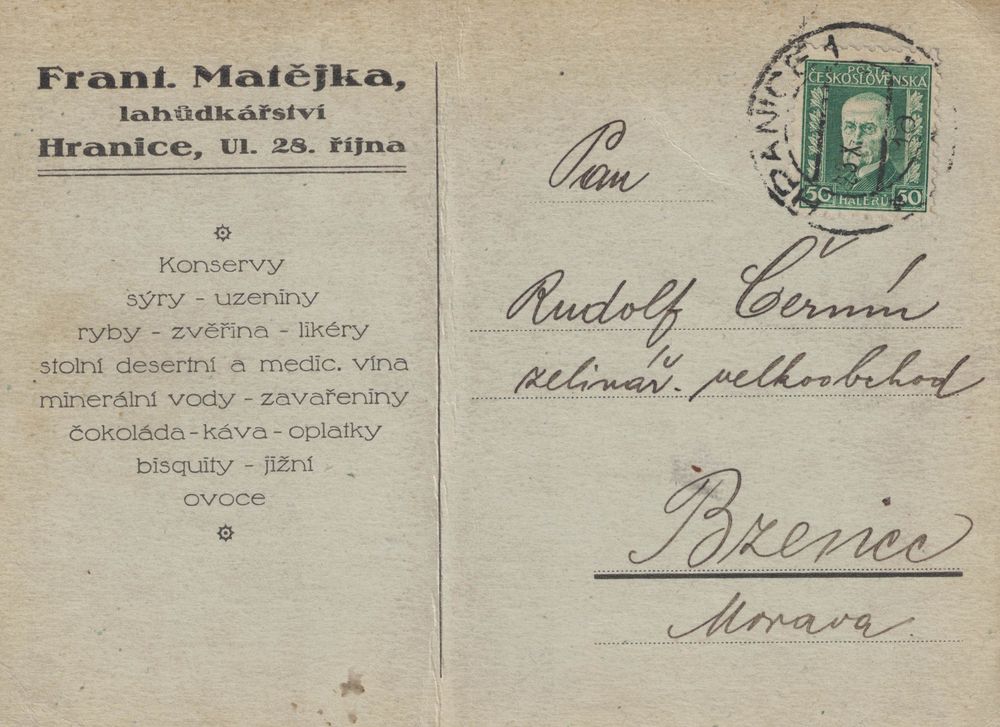 Frant. Matějka,
lahůdkářství
Hranice, Ul. 28. října
Konservy
sýry - uzeniny
ryby - zvěřina - likéry
stolní desertní a medic. vína
minerální vody - zavařeniny
čokoláda - káva - oplatky
bisquity - jižní
ovoce
HRANICE 1
POŠTA
ČESKOSLOVENSKÁ
50 HALÉŘŮ 50
Pan
Rudolf Černín
zelinář. velkoobchod
Bzenec
Morava